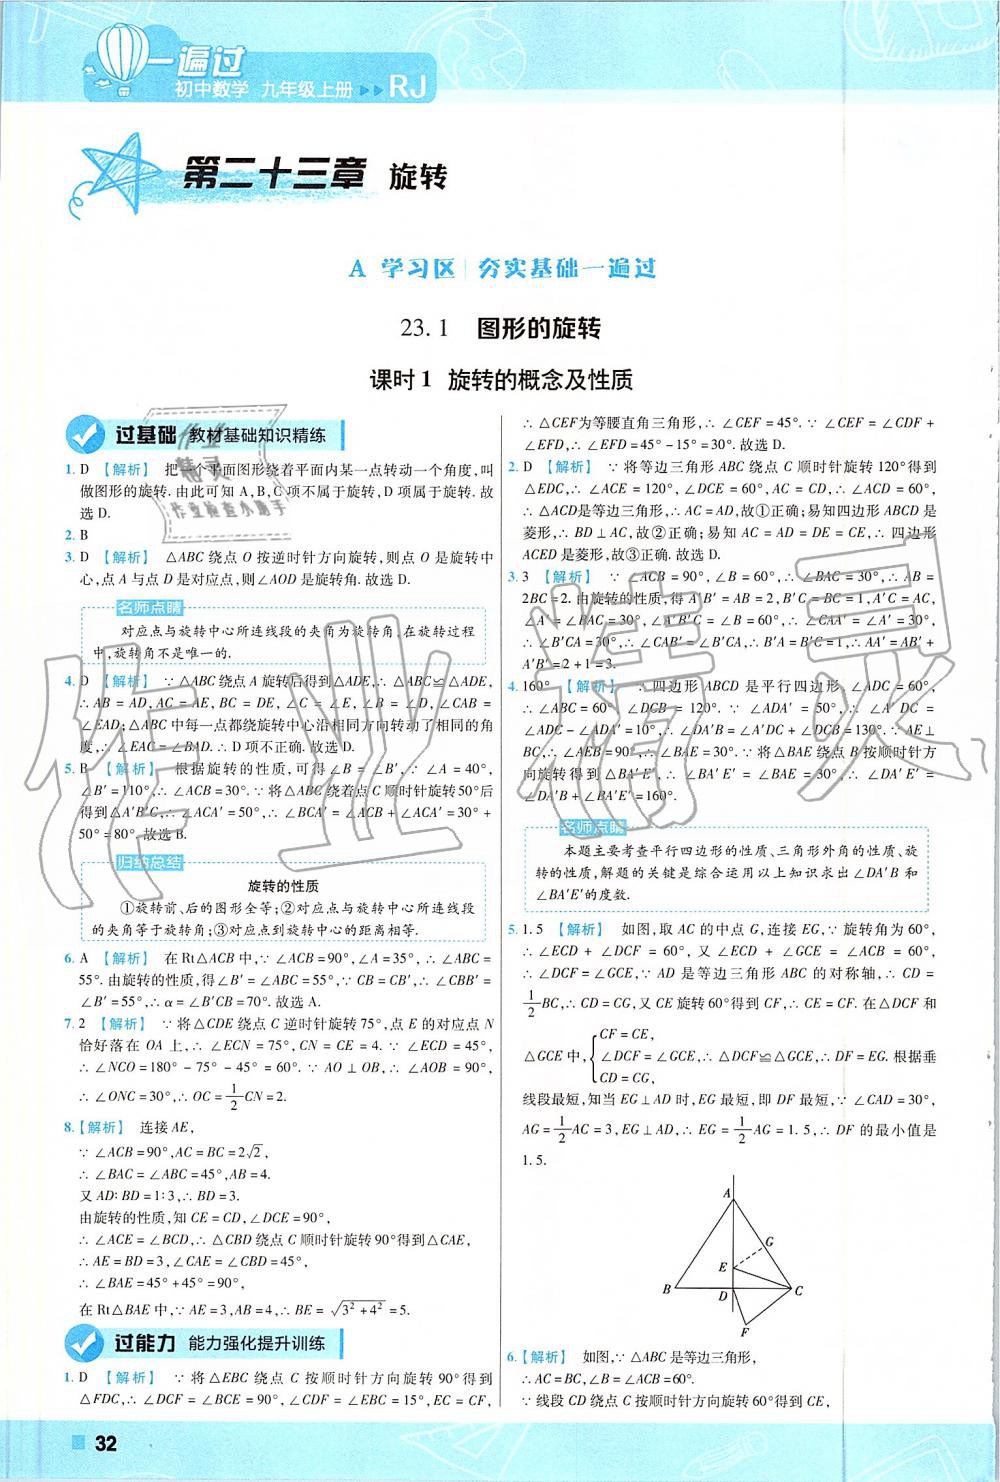 一遍过
初中数学 九年级上册 RJ
第二十三章 旋转
A 学习区 夯实基础一遍过
23.1 图形的旋转
课时1 旋转的概念及性质
过基础 教材基础知识精练
1. D 【解析】 把一个平面图形绕着平面内某一点转动一个角度,叫
做图形的旋转. 由此可知 A,B,C 项不属于旋转,D 项属于旋转. 故
选 D.
2. B
3. D 【解析】 △ABC 绕点 O 按逆时针方向旋转,则点 O 是旋转中
心,点 A 与点 D 是对应点,则∠AOD 是旋转角. 故选 D.
名师点睛
对应点与旋转中心所连线段的夹角为旋转角,在旋转过程
中,旋转角不是唯一的.
4. D 【解析】 ∵△ABC 绕点 A 旋转后得到△ADE,∴△ABC≌△ADE,
∴AB = AD, AC = AE, BC = DE, ∠C = ∠E, ∠B = ∠D, ∠CAB =
∠EAD; △ABC 中每一点都绕旋转中心沿相同方向转动了相同的角
度,∴∠EAC = ∠BAD. ∴D 项不正确. 故选 D.
5. B 【解析】 根据旋转的性质,可得∠B = ∠B′. ∵∠A = 40°,
∠B′ = 110°,∴∠ACB = 30°. ∵将△ABC 绕着点 C 顺时针旋转50°后
得到△A′B′C,∴∠ACA′ = 50°,∴∠BCA′ = ∠ACB + ∠ACA′ = 30° +
50° = 80°. 故选 B.
归纳总结
旋转的性质
①旋转前、后的图形全等;②对应点与旋转中心所连线段
的夹角等于旋转角;③对应点到旋转中心的距离相等.
6. A 【解析】 在 Rt△ACB 中,∵∠ACB = 90°,∠A = 35°,∴∠ABC =
55°. 由旋转的性质,得∠B′ = ∠ABC = 55°,∵CB = CB′,∴∠CBB′ =
∠B′ = 55°,∴α = ∠B′CB = 70°. 故选 A.
7. 2 【解析】 ∵将△CDE 绕点 C 逆时针旋转 75°,点 E 的对应点 N
恰好落在 OA 上,∴∠ECN = 75°, CN = CE = 4. ∵∠ECD = 45°,
∴∠NCO = 180° - 75° - 45° = 60°. ∵AO⊥OB,∴∠AOB = 90°,
∴∠ONC = 30°,∴OC = 1/2 CN = 2.
8. 【解析】 连接 AE,
∵∠ACB = 90°,AC = BC = 2√2,
∴∠BAC = ∠ABC = 45°,AB = 4.
又 AD:BD = 1:3,∴BD = 3.
由旋转的性质,知 CE = CD,∠DCE = 90°,
∴∠ACE = ∠BCD,∴△CBD 绕点 C 顺时针旋转 90°得到△CAE,
∴AE = BD = 3,∠CAE = ∠CBD = 45°,
∴∠BAE = 45° + 45° = 90°,
在 Rt△BAE 中,∵AE = 3,AB = 4,∴BE = √(3² + 4²) = 5.
过能力 能力强化提升训练
1. D 【解析】 ∵将△EBC 绕点 C 按顺时针方向旋转 90°得到
△FDC,∴∠DCF = ∠BCE = 90°,∠CDF = ∠EBC = 15°,EC = CF,
∴△CEF 为等腰直角三角形,∴∠CEF = 45°. ∵∠CEF = ∠CDF +
∠EFD,∴∠EFD = 45° - 15° = 30°. 故选 D.
2. D 【解析】 ∵将等边三角形 ABC 绕点 C 顺时针旋转 120°得到
△EDC,∴∠ACE = 120°,∠DCE = 60°,AC = CD,∴∠ACD = 60°,
∴△ACD是等边三角形,∴AC = AD,故①正确;易知四边形 ABCD 是
菱形,∴BD⊥AC,故②正确;易知 AC = AD = DE = CE,∴四边形
ACED 是菱形,故③正确. 故选 D.
3. 3 【解析】 ∵∠ACB = 90°,∠B = 60°,∴∠BAC = 30°,∴AB =
2BC = 2. 由旋转的性质,得 A′B′ = AB = 2,B′C = BC = 1,A′C = AC,
∠A′ = ∠BAC = 30°,∠A′B′C = ∠B = 60°,∴∠CAA′ = ∠A′ = 30°,
∴∠B′CA = 30°,∴∠CAB′ = ∠B′CA,∴B′A = B′C = 1,∴AA′ = AB′ +
A′B′ = 2 + 1 = 3.
4. 160° 【解析】 ∵四边形 ABCD 是平行四边形,∠ADC = 60°,
∴∠ABC = 60°,∠DCB = 120°. ∵∠ADA′ = 50°,∴∠A′DC =
∠ADC - ∠ADA′ = 10°,∴∠DA′B = ∠A′DC + ∠DCB = 130°. ∵AE⊥
BC,∴∠AEB = 90°,∴∠BAE = 30°. ∵将△BAE 绕点 B 按顺时针方
向旋转得到△BA′E′,∴∠BA′E′ = ∠BAE = 30°,∴∠DA′E′ =
∠DA′B + ∠BA′E′ = 160°.
名师点睛
本题主要考查平行四边形的性质、三角形外角的性质、旋
转的性质,解题的关键是综合运用以上知识求出∠DA′B 和
∠BA′E′的度数.
5. 1.5 【解析】 如图,取 AC 的中点 G,连接 EG,∵旋转角为 60°,
∴∠ECD + ∠DCF = 60°,又∠ECD + ∠GCE = ∠ACB = 60°,
∴∠DCF = ∠GCE,∵AD 是等边三角形 ABC 的对称轴,∴CD =
1/2 BC,∴CD = CG,又 CE 旋转60°得到 CF,∴CE = CF. 在△DCF 和
△GCE 中, { CF = CE, ∠DCF = ∠GCE, CD = CG, ∴△DCF≌△GCE,∴DF = EG. 根据垂
线段最短,知当 EG⊥AD 时,EG 最短,即 DF 最短,∵∠CAD = 30°,
AG = 1/2 AC = 3,EG⊥AD,∴EG = 1/2 AG = 1.5,∴DF 的最小值是
1.5.
A
G
E
B
D
C
F
6. 【解析】 如图,∵△ABC 是等边三角形,
∴AC = BC,∠B = ∠ACB = 60°.
∵线段 CD 绕点 C 按顺时针方向旋转 60°得到 CE,
32
作业精灵
作业
精灵
作业检查小助手